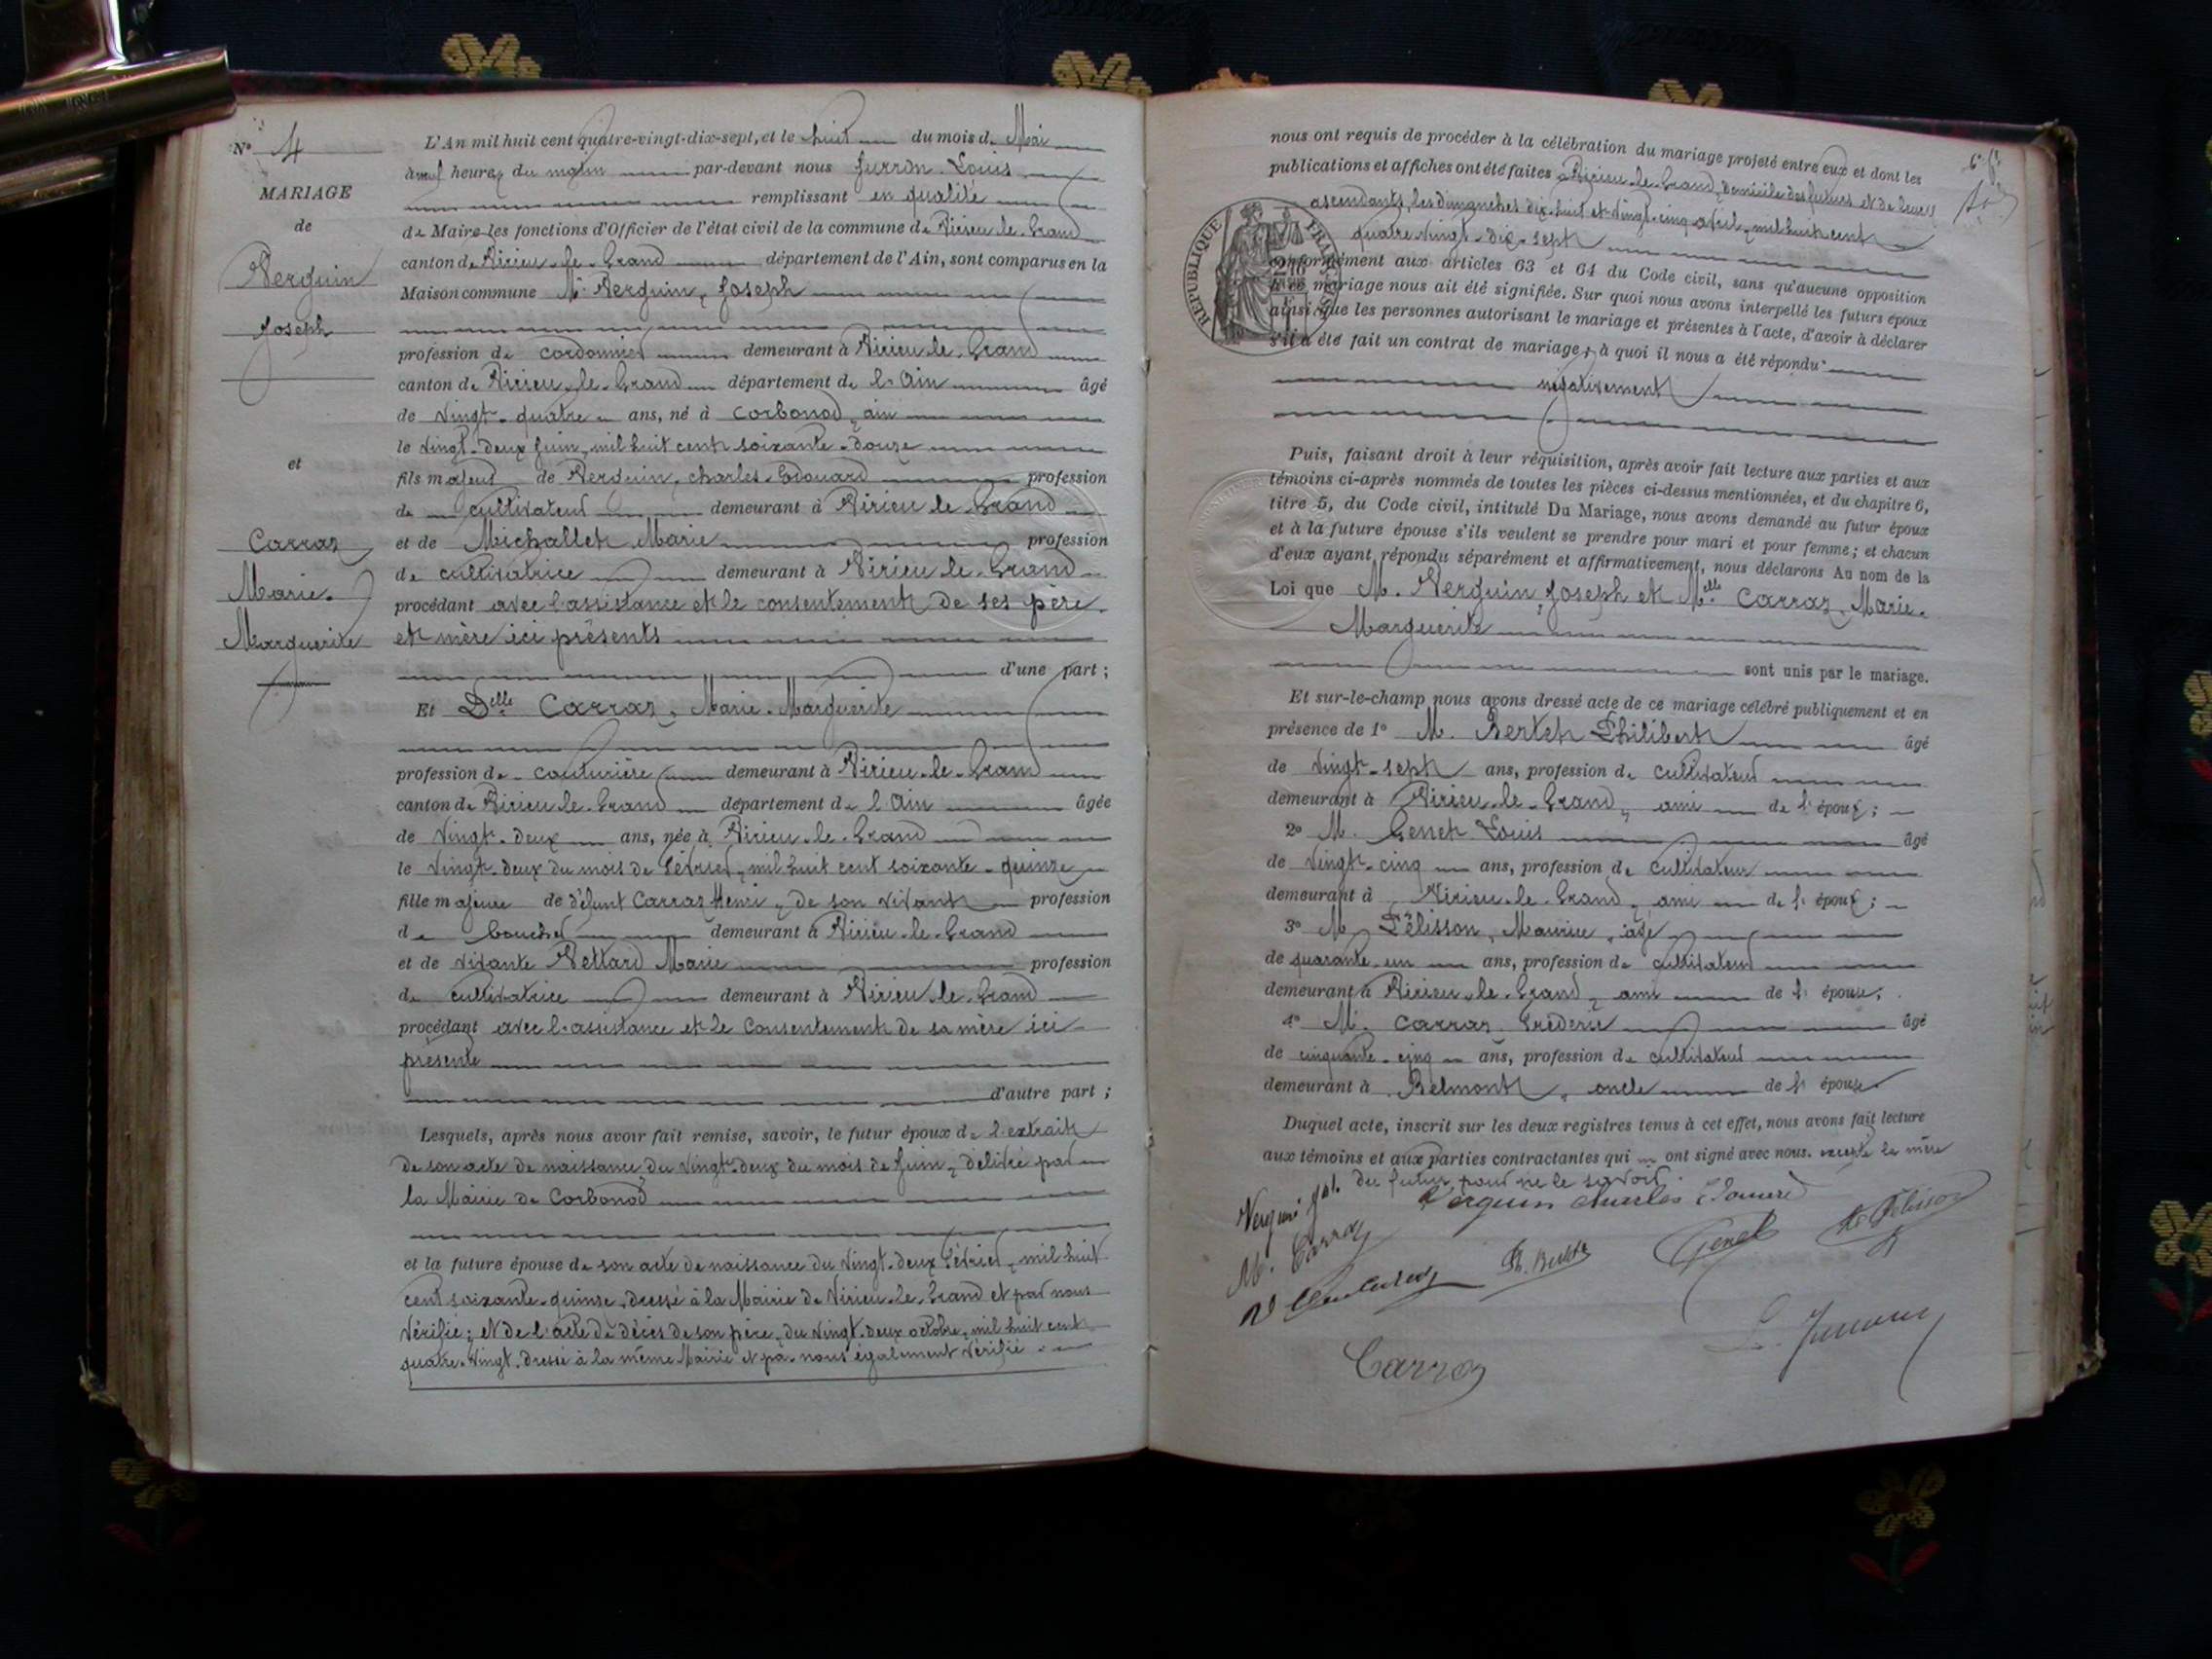 N° 4
MARIAGE
de
Verguin
Joseph
et
Carraz
Marie-
Marguerite
L'An mil huit cent quatre-vingt-dix-sept, et le huit du mois de Mai
à neuf heures du matin par-devant nous Juron Louis
remplissant en qualité
de Maire les fonctions d'Officier de l'état civil de la commune de Virieu-le-Grand
canton de Virieu-le-Grand département de l'Ain, sont comparus en la
Maison commune Mr Verguin, Joseph
profession de cordonnier demeurant à Virieu-le-Grand
canton de Virieu-le-Grand département de l'Ain âgé
de vingt-quatre ans, né à Corbonod, ain
le vingt-deux juin, mil huit cent soixante-douze
fils majeur de Verguin, charles-Edouard profession
de cultivateur demeurant à Virieu-le-Grand
et de Michallet Marie profession
de cultivatrice demeurant à Virieu-le-Grand
procédant avec l'assistance et le consentement de ses père
et mère ici présents
d'une part ;
Et Delle Carraz, Marie-Marguerite
profession de couturière demeurant à Virieu-le-Grand
canton de Virieu-le-Grand département de l'Ain âgée
de vingt-deux ans, née à Virieu-le-Grand
le vingt-deux du mois de Février, mil huit cent soixante-quinze
fille majeure de défunt Carraz Henri, de son vivant profession
de boucher demeurant à Virieu-le-Grand
et de vivante Vettard Marie profession
de cultivatrice demeurant à Virieu-le-Grand
procédant avec l'assistance et le consentement de sa mère ici
présente
d'autre part ;
Lesquels, après nous avoir fait remise, savoir, le futur époux de l'extrait
de son acte de naissance du vingt-deux du mois de Juin, délivré par
la Mairie de Corbonod
et la future épouse de son acte de naissance du vingt-deux Février, mil huit
cent soixante-quinze, dressé à la Mairie de Virieu-le-Grand et par nous
vérifié ; et de l'acte de décès de son père, du vingt-deux octobre, mil huit cent
quatre-vingt, dressé à la même Mairie et par nous également vérifié.
nous ont requis de procéder à la célébration du mariage projeté entre eux et dont les
publications et affiches ont été faites à Virieu-le-Grand, domicile des futurs et de leurs
ascendants, les dimanches dix-huit et vingt-cinq avril, mil huit cent
quatre-vingt-dix-sept
RÉPUBLIQUE FRANÇAISE
conformément aux articles 63 et 64 du Code civil, sans qu'aucune opposition
à ce mariage nous ait été signifiée. Sur quoi nous avons interpellé les futurs époux
ainsi que les personnes autorisant le mariage et présentes à l'acte, d'avoir à déclarer
s'il a été fait un contrat de mariage, à quoi il nous a été répondu
négativement
Puis, faisant droit à leur réquisition, après avoir fait lecture aux parties et aux
témoins ci-après nommés de toutes les pièces ci-dessus mentionnées, et du chapitre 6,
titre 5, du Code civil, intitulé Du Mariage, nous avons demandé au futur époux
et à la future épouse s'ils veulent se prendre pour mari et pour femme ; et chacun
d'eux ayant répondu séparément et affirmativement, nous déclarons Au nom de la
Loi que M. Verguin, Joseph et Melle Carraz, Marie-
Marguerite
sont unis par le mariage.
Et sur-le-champ nous avons dressé acte de ce mariage célébré publiquement et en
présence de 1° M. Bertet Philibert âgé
de vingt-sept ans, profession de cultivateur
demeurant à Virieu-le-Grand, ami de l'époux ;
2° M. Genet Louis âgé
de vingt-cinq ans, profession de cultivateur
demeurant à Virieu-le-Grand, ami de l'époux ;
3° M. Pélisson, Maurice, âgé
de quarante-un ans, profession de cultivateur
demeurant à Virieu-le-Grand, ami de l'épouse,
4° M. Carraz Fréderic âgé
de cinquante-cinq ans, profession de cultivateur
demeurant à Belmont, oncle de l'épouse.
Duquel acte, inscrit sur les deux registres tenus à cet effet, nous avons fait lecture
aux témoins et aux parties contractantes qui ont signé avec nous. excepté la mère
du futur pour ne le savoir.
Verguin Jh. Verguin charles Edouard
M. Carraz Ph. Bertet Genet M. Pélisson
Carraz